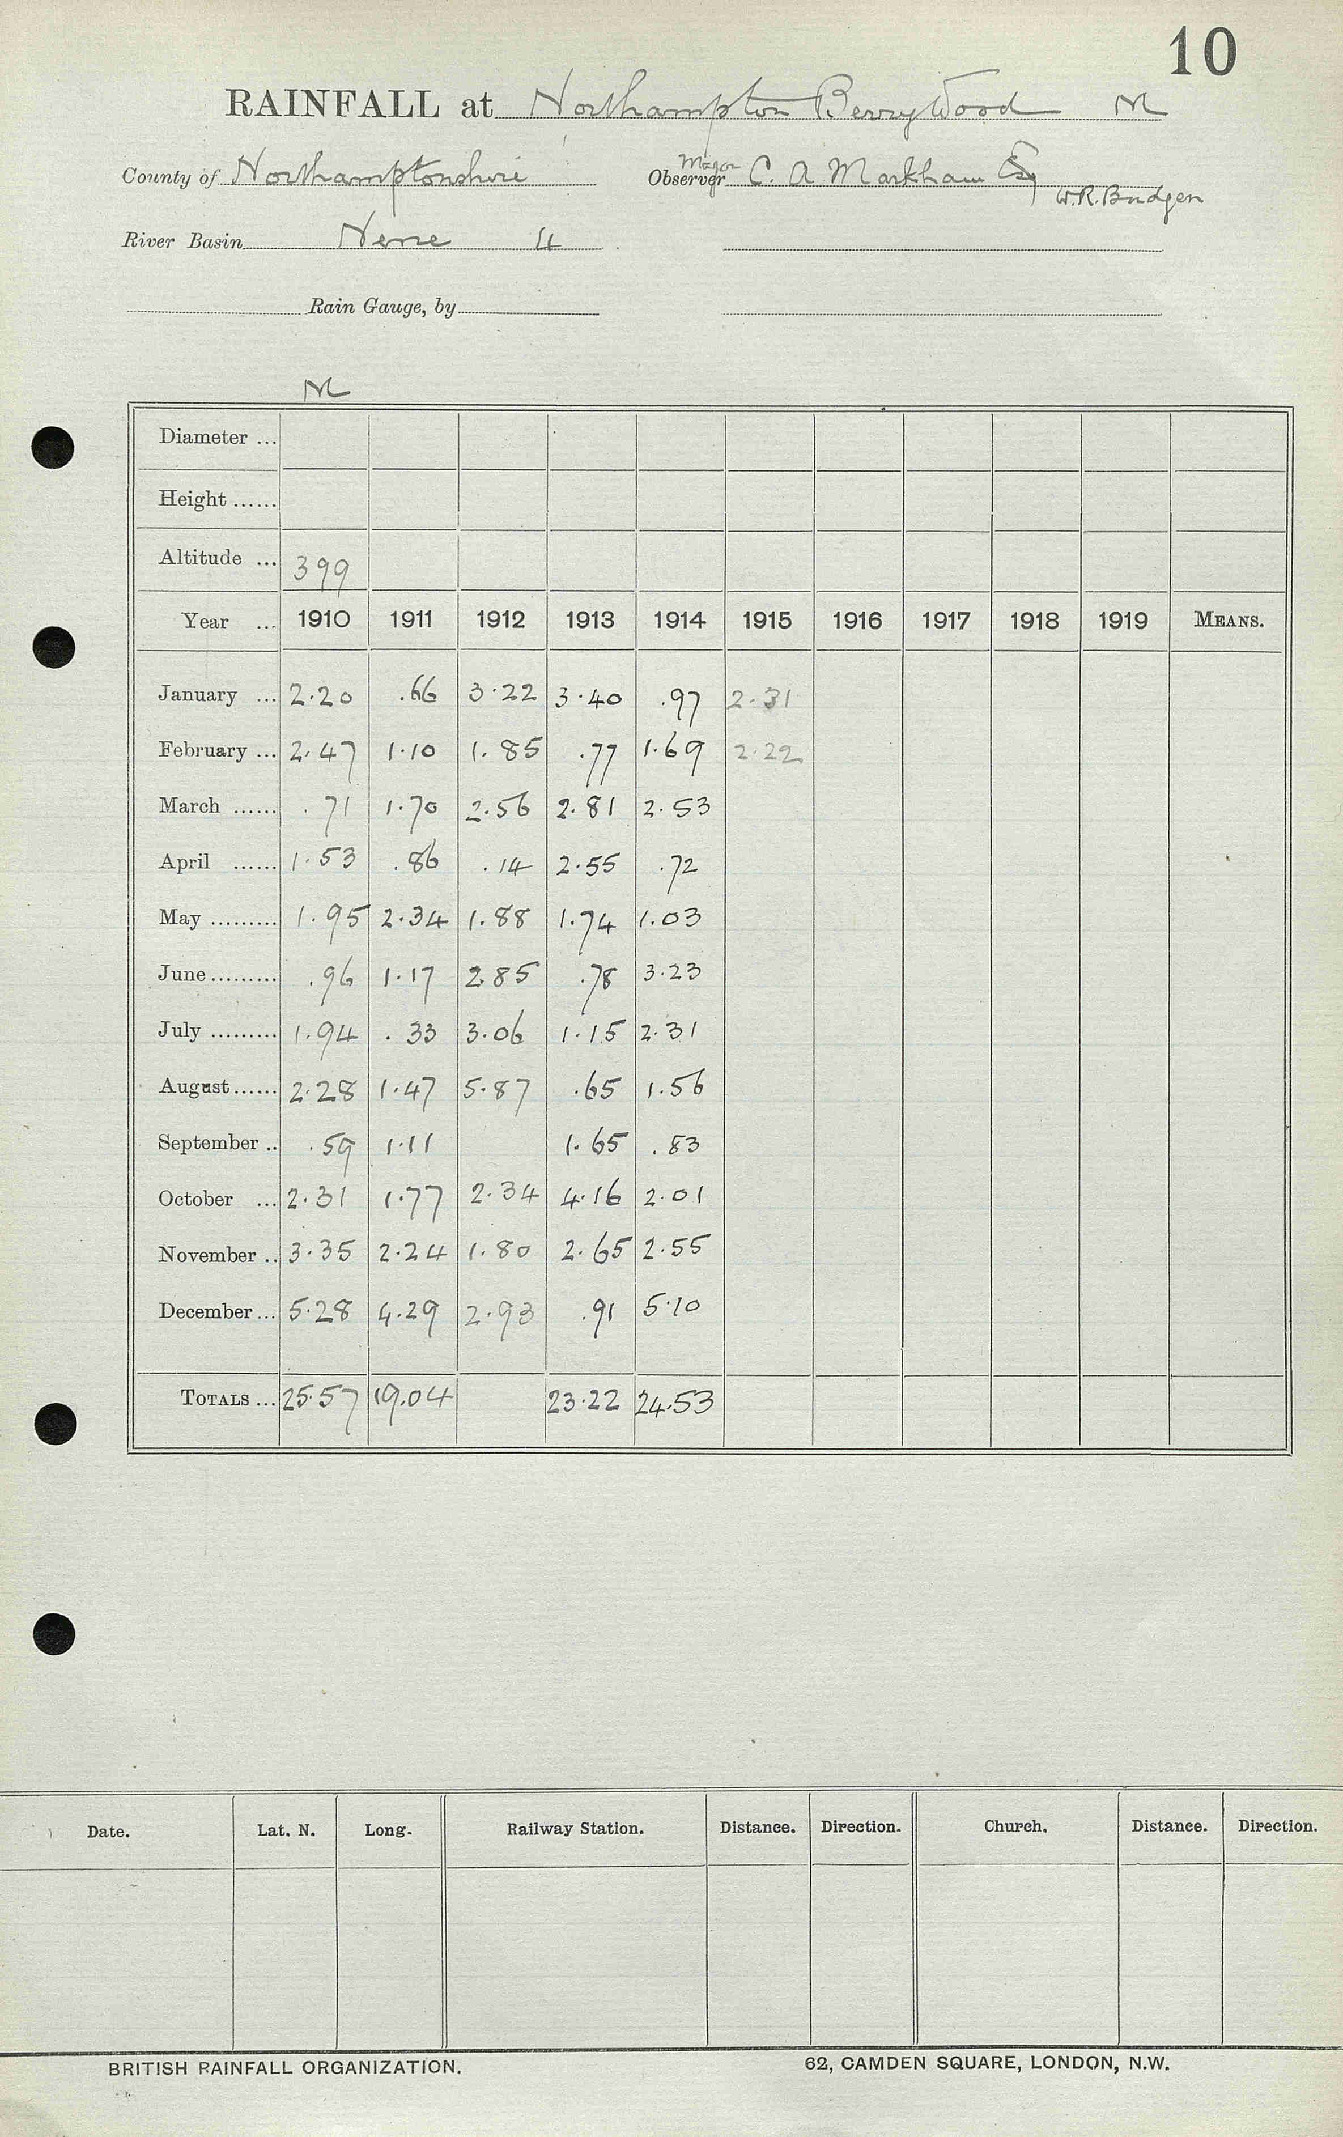 10
RAINFALL at Northampton Berrywood M
County of Northamptonshire Observer Major C. A Markham Esq
W.R. Budgen
River Basin Nene 4
Rain Gauge, by
M
Diameter ...
Height ......
Altitude ... 399
Year ... 1910 1911 1912 1913 1914 1915 1916 1917 1918 1919 MEANS.
January ... 2.20 .66 3.22 3.40 .97 2.31
February ... 2.47 1.10 1.85 .77 1.69 2.22
March ...... .71 1.70 2.56 2.81 2.53
April ...... 1.53 .86 .14 2.55 .72
May ......... 1.95 2.34 1.88 1.74 1.03
June ......... .96 1.17 2.85 .78 3.23
July ......... 1.94 .33 3.06 1.15 2.31
August ...... 2.28 1.47 5.87 .65 1.56
September .. .59 1.11 1.65 .83
October ... 2.31 1.77 2.34 4.16 2.01
November .. 3.35 2.24 1.80 2.65 2.55
December ... 5.28 4.29 2.93 .91 5.10
TOTALS ... 25.57 19.04 23.22 24.53
Date. Lat. N. Long. Railway Station. Distance. Direction. Church. Distance. Direction.
BRITISH RAINFALL ORGANIZATION. 62, CAMDEN SQUARE, LONDON, N.W.